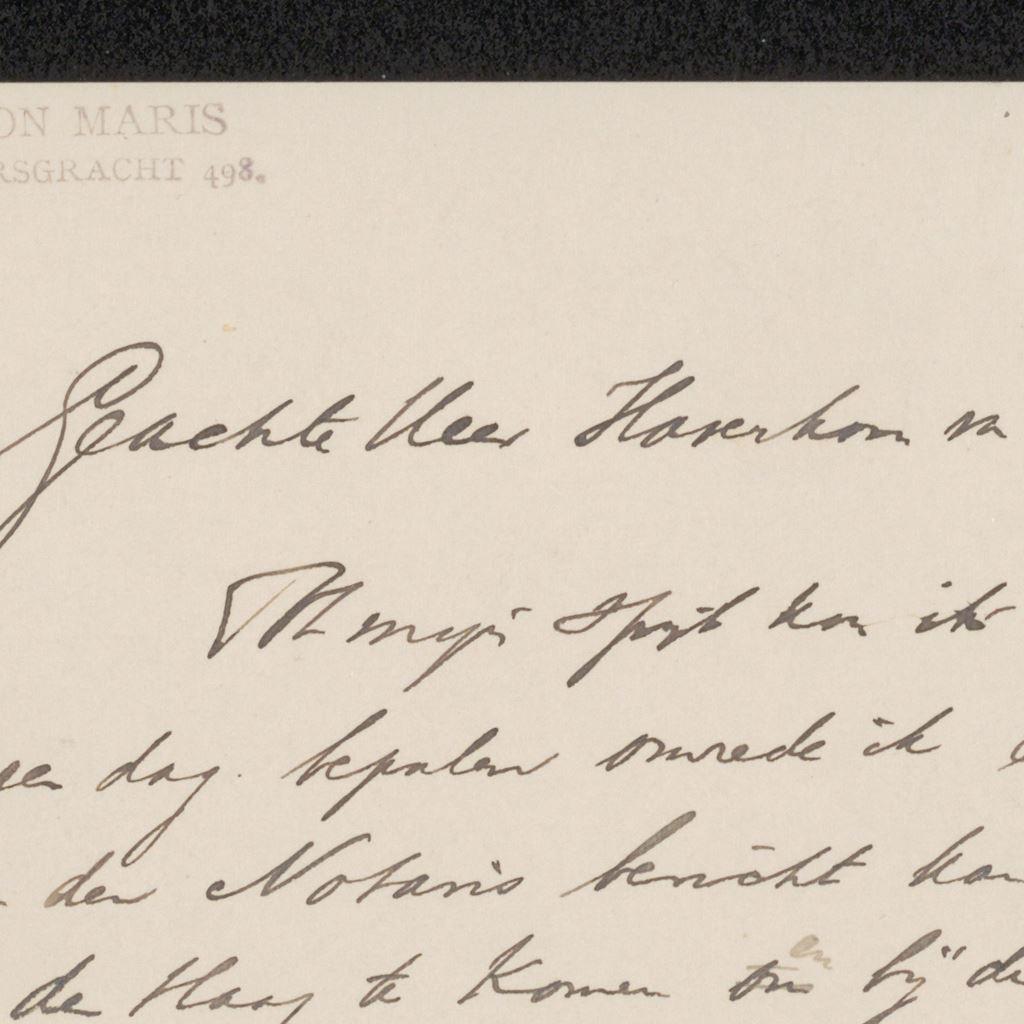 ON MARIS
RSGRACHT 498.
Geachte Heer Haverkorn va
Tot mijn spijt kan ik
een dag bepalen omrede ik
den Notaris bericht kan
den Haag te komen en bij de